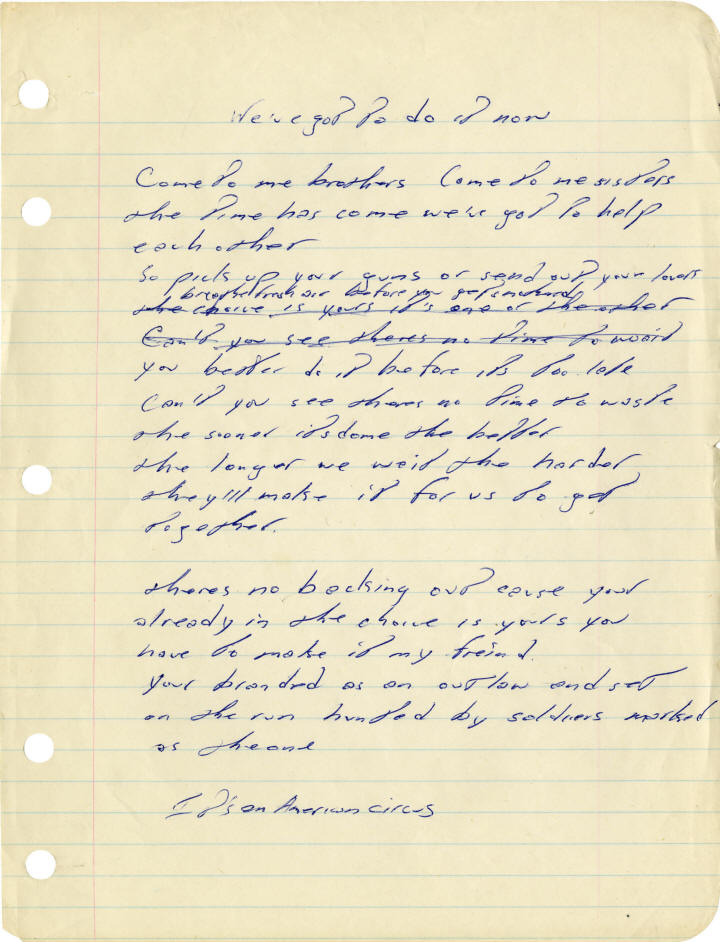 We've got to do it now
Come to me brothers Come to me sisters
the time has come we've got to help
each other
So pick up your guns or send out your lovers
breathe fresh air before you get smothered
the choice is yours it's one or the other
Can't you see theres no time to waait
you better do it before its too late
Can't you see theres no time to waste
the sooner itsdone the better
the longer we wait the harder
they'll make it for us to get
together.
theres no backing out cause your
already in the choice is yours you
have to make it my freind.
Your branded as an outlaw and set
on the run hunted by soldiers marked
as the one
It's an American circus